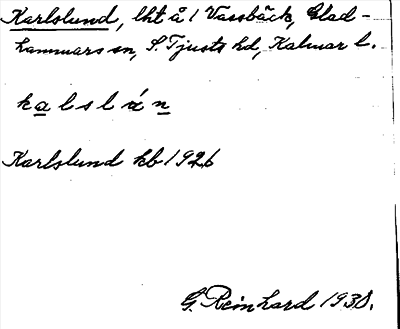 Karlslund, lht å 1 Vassbäck, Glad-
hammars sn, S Tjusts hd, Kalmar l.
kalslán
Karlslund kb 1926
G. Reinhard 1938.